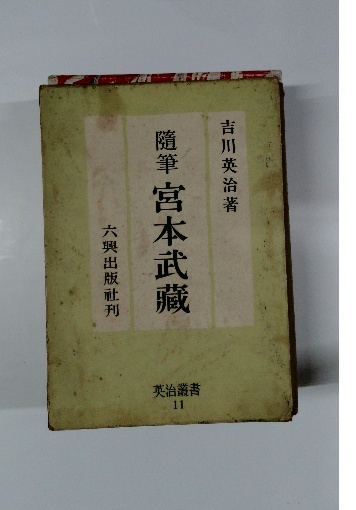 吉川英治著
隨筆 宮本武藏
六興出版社刊
英治叢書
11